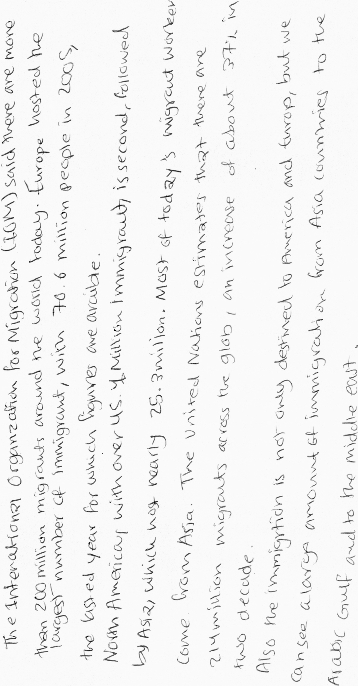 The Intenational Organization for Migration (IOM) said there are more
than 200 million migrants around the world today. Europe hosted the
largest number of Immigrant, with 70.6 million people in 2005,
the lasted year for which figures are avaible.
North American, with over 45.1 Million Immigrant, is second, followed
by Asia, which host nearly 25.3 million. Most of today's migrant worker
come from Asia. The United Nations estimates that there are
214 million migrants across the glob, an increase of about 37% in
two decade.
Also the immigrtion is not only destined to America and Europ, but we
can see a large amount of immigration from Asia countries to the
Arabic Gulf and to the middle east.